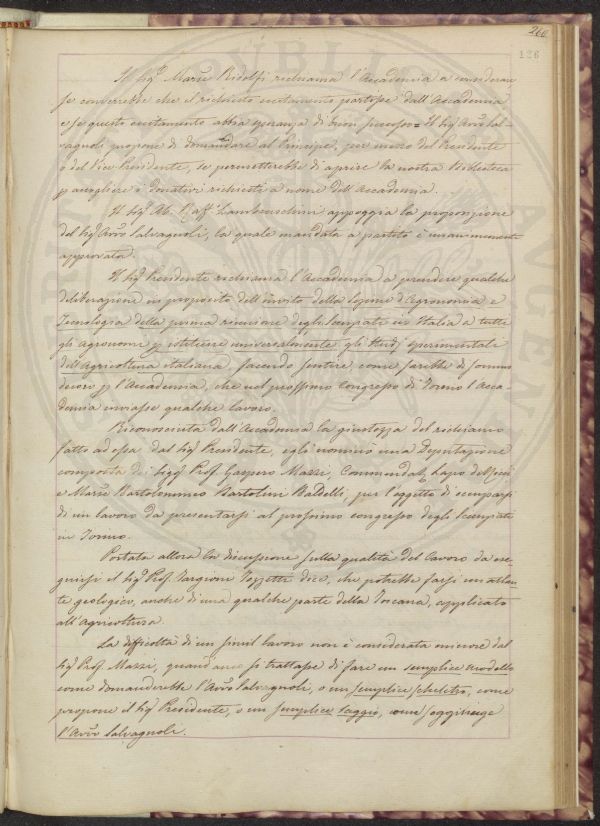 260
126
Il Sig.r March.e Ridolfi richiama l'Accademia a considerare
se converrebbe che il richiesto eccitamento partisse dall'Accademia
e se questo eccitamento abbia speranza di buon successo = Il Sig.r Avv.o Sal-
vagnoli propone di domandare al Principe, per mezzo del Presidente
o del Vice-Presidente, se permetterebbe di aprire la nostra Biblioteca
p accogliere i donativi richiesti a nome dell'Accademia.
Il Sig.r Ab. Raff.o Lambruschini appoggia la proposizione
del Sig.r Avv.o Salvagnoli, la quale mandata a partito è unanimemente
approvata.
Il Sig.r Presidente richiama l'Accademia a prendere qualche
deliberazione in proposito dell'invito della Sezione d'Agronomia e
Tecnologia della prima riunione degli Scienziati in Italia a tutti
gli agronomi p istituire universalmente gli studj sperimentali
dell'Agricoltura italiana, facendo sentire come sarebbe di sommo
decoro p l'Accademia, che nel prossimo Congresso di Torino l'Acca-
demia inviasse qualche lavoro.
Riconosciuta dall'Accademia la giustezza del richiamo
fatto ad essa dal Sig.r Presidente, egli nominò una Deputazione
composta dei Sigg.i Prof. Gaspero Mazzi, Commendat.e Lapo de' Ricci
e March.e Bartolommeo Bartolini Baldelli, per l'oggetto di occuparsi
di un lavoro da presentarsi al prossimo congresso degli Scienziati
in Torino.
Portata allora la discussione sulla qualità del lavoro da ese-
guirsi il Sig.r Prof. Targioni Tozzetti dice, che potrebbe farsi un atlan-
te geologico, anche di una qualche parte della Toscana, applicato
all'agricoltura.
La difficoltà di un simil lavoro non è considerata minore dal
Sig.r Prof. Mazzi, quand'anco si trattasse di fare un semplice modello
come domanderebbe l'Avv.o Salvagnoli, o un semplice scheletro, come
propone il Sig.r Presidente, o un semplice saggio, come soggiunge
l'Avv.o Salvagnoli.